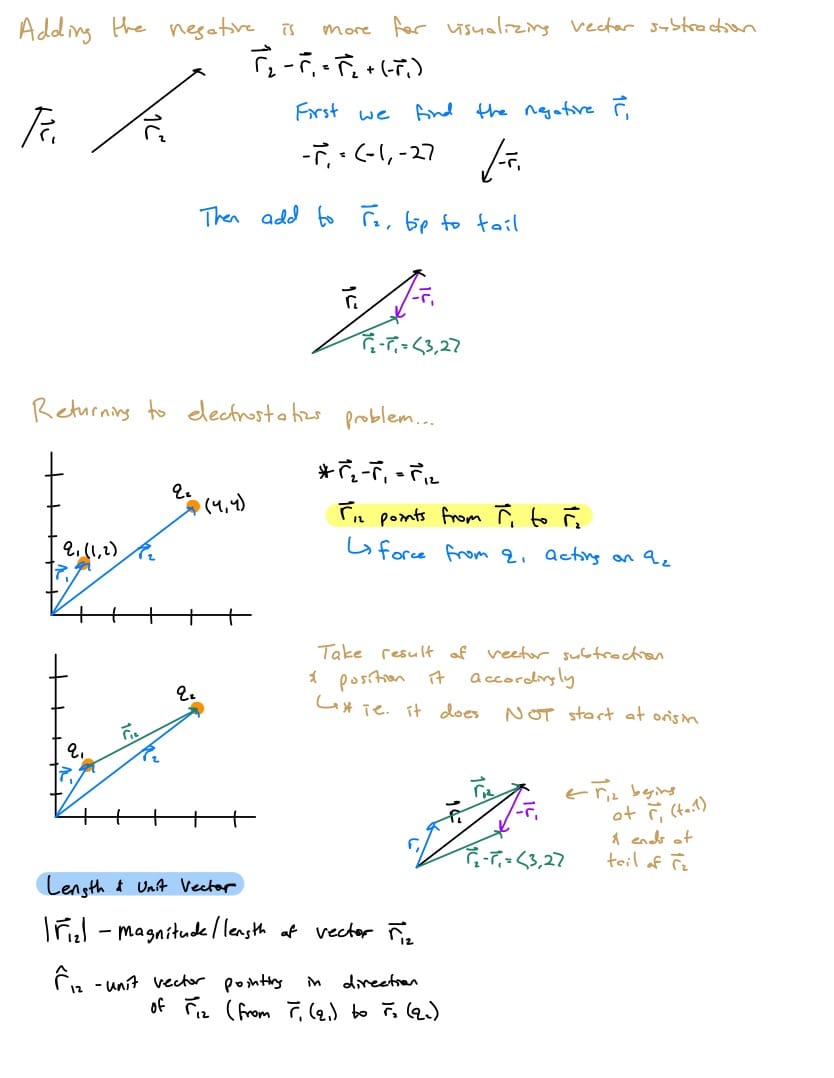 Adding the negative is more for visualizing vector subtraction
r⃗₂ - r⃗₁ = r⃗₂ + (-r⃗₁)
r⃗₁
r⃗₂
First we find the negative r⃗₁
-r⃗₁ = <-1, -2>
-r⃗₁
Then add to r⃗₂, tip to tail
r⃗₂
-r⃗₁
r⃗₂-r⃗₁ = <3,2>
Returning to electrostatics problem...
* r⃗₂ - r⃗₁ = r⃗₁₂
q₂
(4,4)
r⃗₁₂ points from r⃗₁ to r⃗₂
q₁ (1,2)
r⃗₂
r⃗₁
↳ force from q₁ acting on q₂
Take result of vector subtraction
& position it accordingly
↳* ie. it does NOT start at origin
q₂
r⃗₁₂
q₁
r⃗₂
r⃗₁
r⃗₁₂
r⃗₂
-r⃗₁
r⃗₁
r⃗₂-r⃗₁ = <3,2>
← r⃗₁₂ begins
at r⃗₁ (tail)
& ends at
tail of r⃗₂
Length & Unit Vector
|r⃗₁₂| - magnitude/length of vector r⃗₁₂
r̂₁₂ - unit vector pointing in direction
of r⃗₁₂ (from r⃗₁ (q₁) to r⃗₂ (q₂)